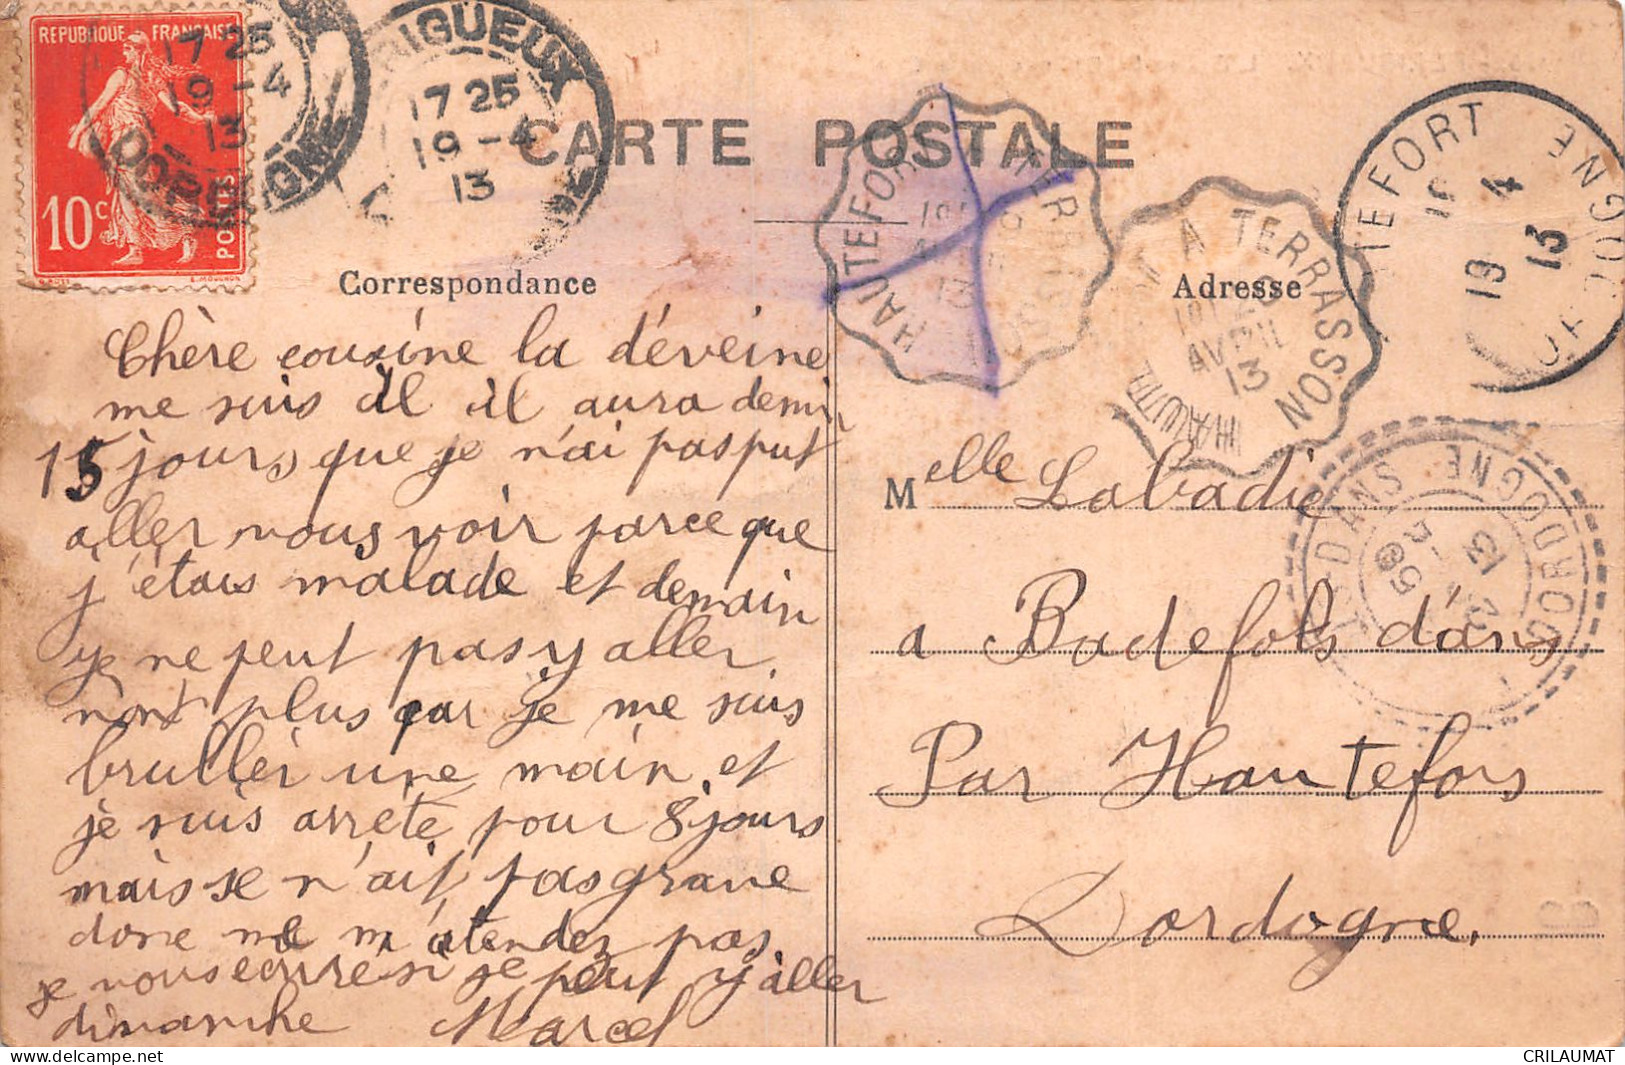 REPUBLIQUE FRANÇAISE
10c
POSTES
17 25
19 - 4
13
DORDOGNE
17 25
19 - 4
13
CARTE POSTALE
HAUTEFORT
A TERRASSON
AVRIL
13
HAUTEFORT
19 4
13
DORDOGNE
Correspondance
Adresse
Chère cousine la déveine
me suis il il aura demin
15 jours que je n'ai pas put
aller vous voir parce que
j'étais malade et demain
je ne peut pas y aller
nont plus car je me suis
bruller une main et
je suis arrête pour 8 jours
mais se n'ait pas grave
donc ne m'atendez pas
je vous ecrire si je peut y aller
dimanche Marcel
Melle Labadie
a Badefols d'ans
Par Hautefors
Dordogne.
DANS DORDOGNE
CRILAUMAT